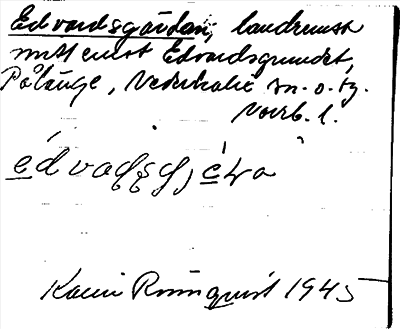 Edvardsgärdan, landremsa
mitt emot Edvardsgrundet,
Pålänge, Nederkalix sn. o. tg.
Norrb. l.
Karin Rönnquist 1945